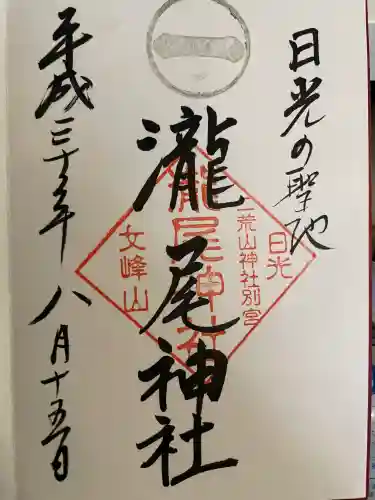 日光の聖地
瀧尾神社
平成三十年八月十五日
日光
二荒山神社別宮
瀧尾神社
女峰山